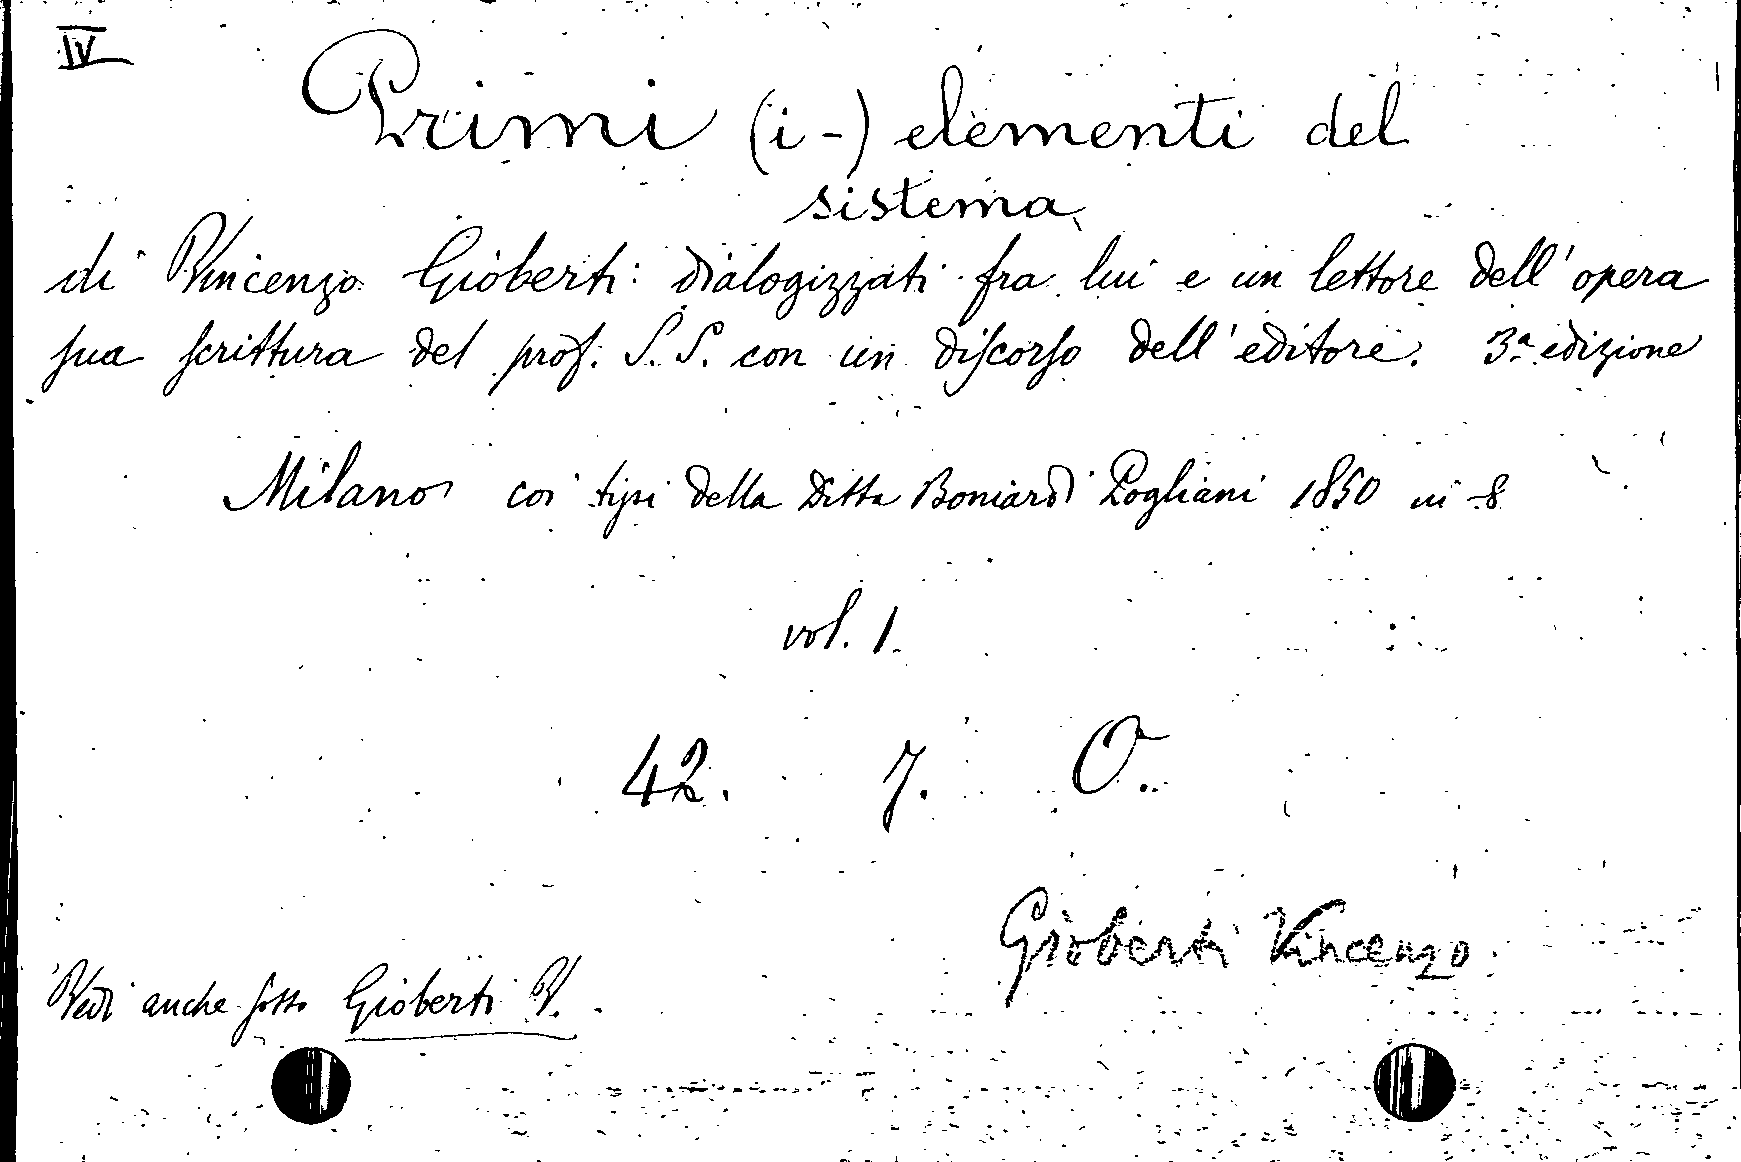 IV
Primi (i-) elementi del
sistema
di Vincenzo Gioberti: dialogizzati fra lui e un lettore dell'opera
sua scrittura del prof. S. S. con un discorso dell'editore. 3ª edizione
Milano coi tipi della Ditta Boniardi Pogliani 1850 in 8
vol. 1.
42. 7. O.
Gioberti Vincenzo
Vedi anche sotto Gioberti V.